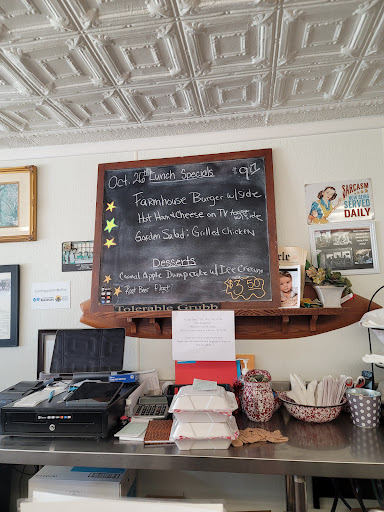 Oct. 26th Lunch Specials $9.
Farmhouse Burger w/side
Hot Ham & Cheese on TX toast w/side
Garden Salad: Grilled Chicken
Desserts
Caramel Apple Dump cake w/ Ice Cream
Root Beer Float
$3.50
Tolerable Grubb
SARCASM
SERVED
DAILY